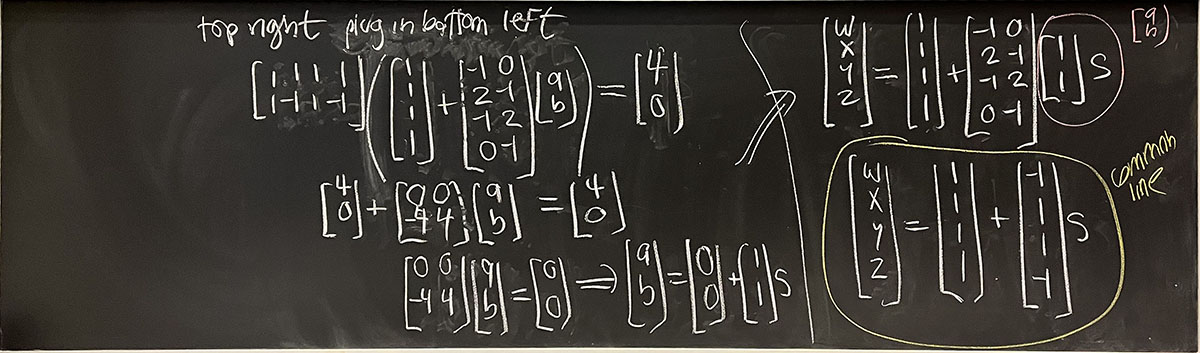 top right plug in bottom left
[1 1 1 1; 1 -1 1 -1] ([1; 1; 1; 1] + [-1 0; 2 -1; -1 2; 0 -1] [a; b]) = [4; 0]
[4; 0] + [0 0; -4 4] [a; b] = [4; 0]
[0 0; -4 4] [a; b] = [0; 0] ⟹ [a; b] = [0; 0] + [1; 1] s
[a; b]
[w; x; y; z] = [1; 1; 1; 1] + [-1 0; 2 -1; -1 2; 0 -1] [1; 1] s
common
line
[w; x; y; z] = [1; 1; 1; 1] + [-1; 1; 1; -1] s